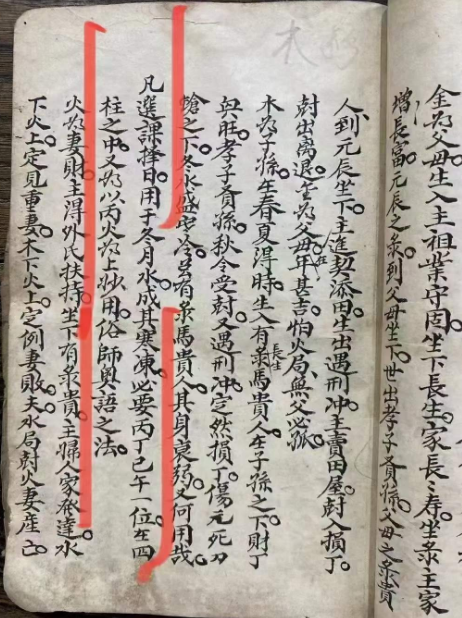 金為父母生入主祖業守固坐下長生家長寿坐彔主家
增長富元辰之彔到父母坐下世出孝子賢孫父母之彔貴
人到元辰坐下主進契添田生出遇刑冲主賣田屋尅入損丁
尅出離退金為父母年旺甚吉怕火局無父必孤
木為子孫生春夏得時生入有彔馬長生貴人在子孫之下財丁
與旺孝子賢孫秋令受尅又遇刑冲定然損丁傷元死刀
鎗之下冬水盛冷若有彔馬貴人其身衰弱又何用哉
凡選課擇日用于冬月水成其寒凍必要丙丁巳午一位在四
柱之中又為以丙火為上妙用俗師奧語之法
火為妻財主得外氏扶持坐下有彔貴主婦人家發達水
下火上定見重妻木下火上定例妻夫水局尅火妻産亡